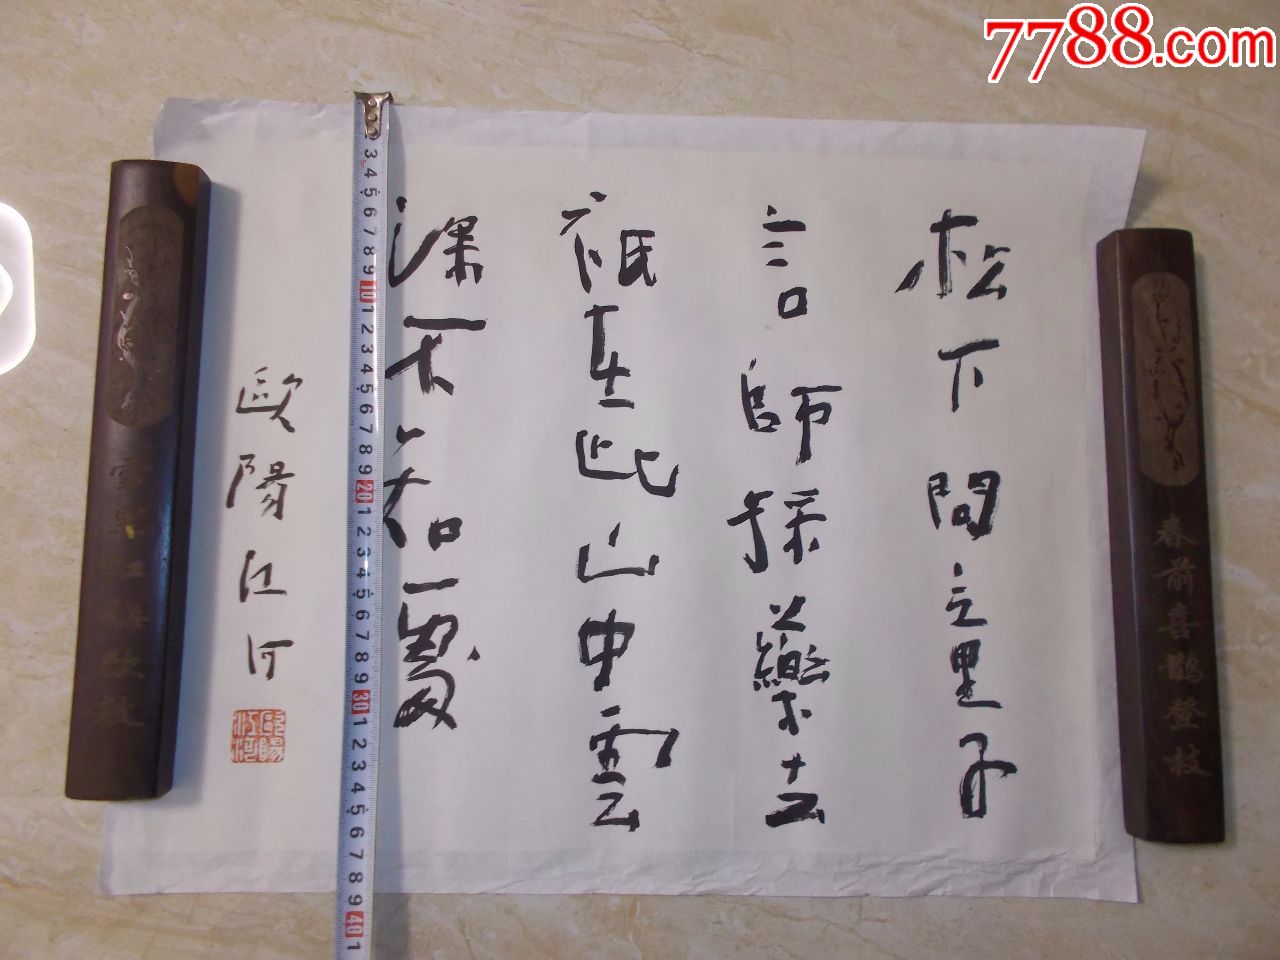 7788.com
松下問童子
言師採藥去
祇在此山中雲
深不知處
歐陽江河
歐陽江河
春前喜鵲登枝
3 4 5 6 7 8 9 10 1 2 3 4 5 6 7 8 9 20 1 2 3 4 5 6 7 8 9 30 1 2 3 4 5 6 7 8 9 40 1